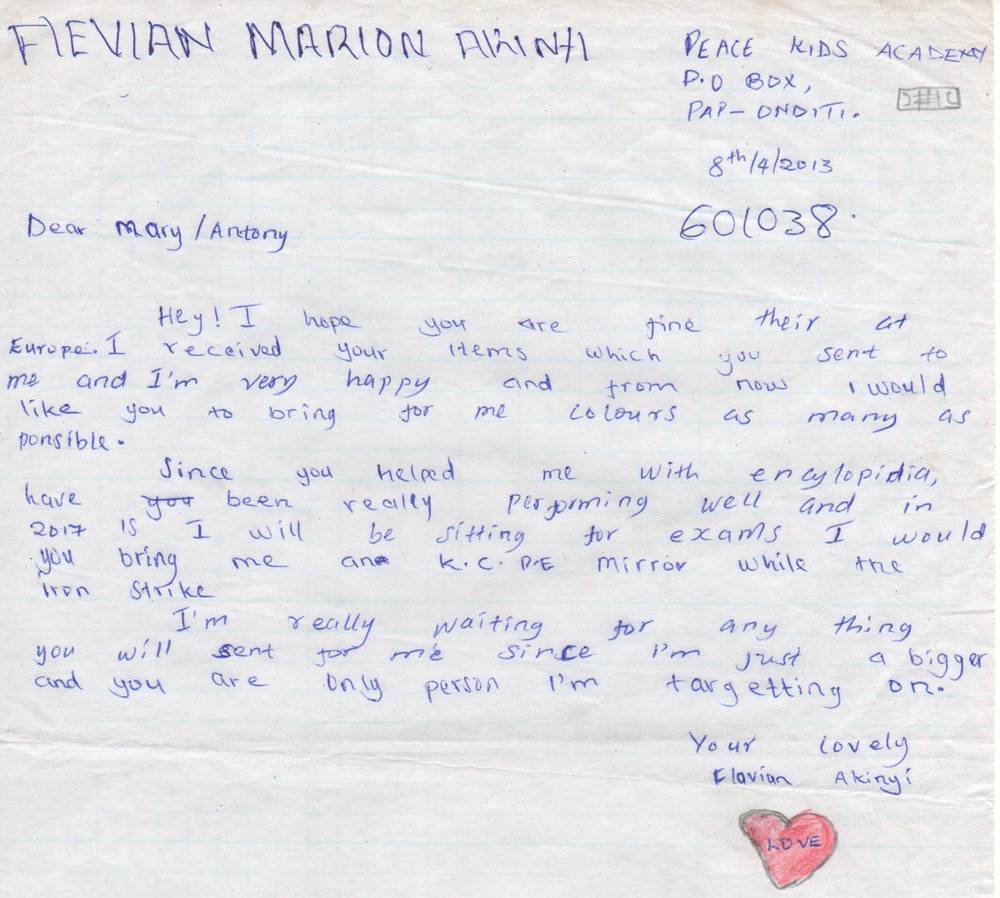 FLEVIAN MARION AKINYI
PEACE KIDS ACADEMY
P.O BOX,
PAP-ONDITI.
8th/4/2013
601038.
Dear Mary/Antony
Hey! I hope you are fine their at
Europe. I received your items which you sent to
me and I'm very happy and from now I would
like you to bring for me colours as many as
ponsible.
Since you helped me with encylopidia,
have you been really perporming well and in
2017 is I will be sitting for exams I would
you bring me an K.C.P.E mirror while the
iron strike
I'm really waiting for any thing
you will sent for me since i'm just a bigger
and you are only person I'm targetting on.
Your lovely
Flavian Akinyi
LOVE